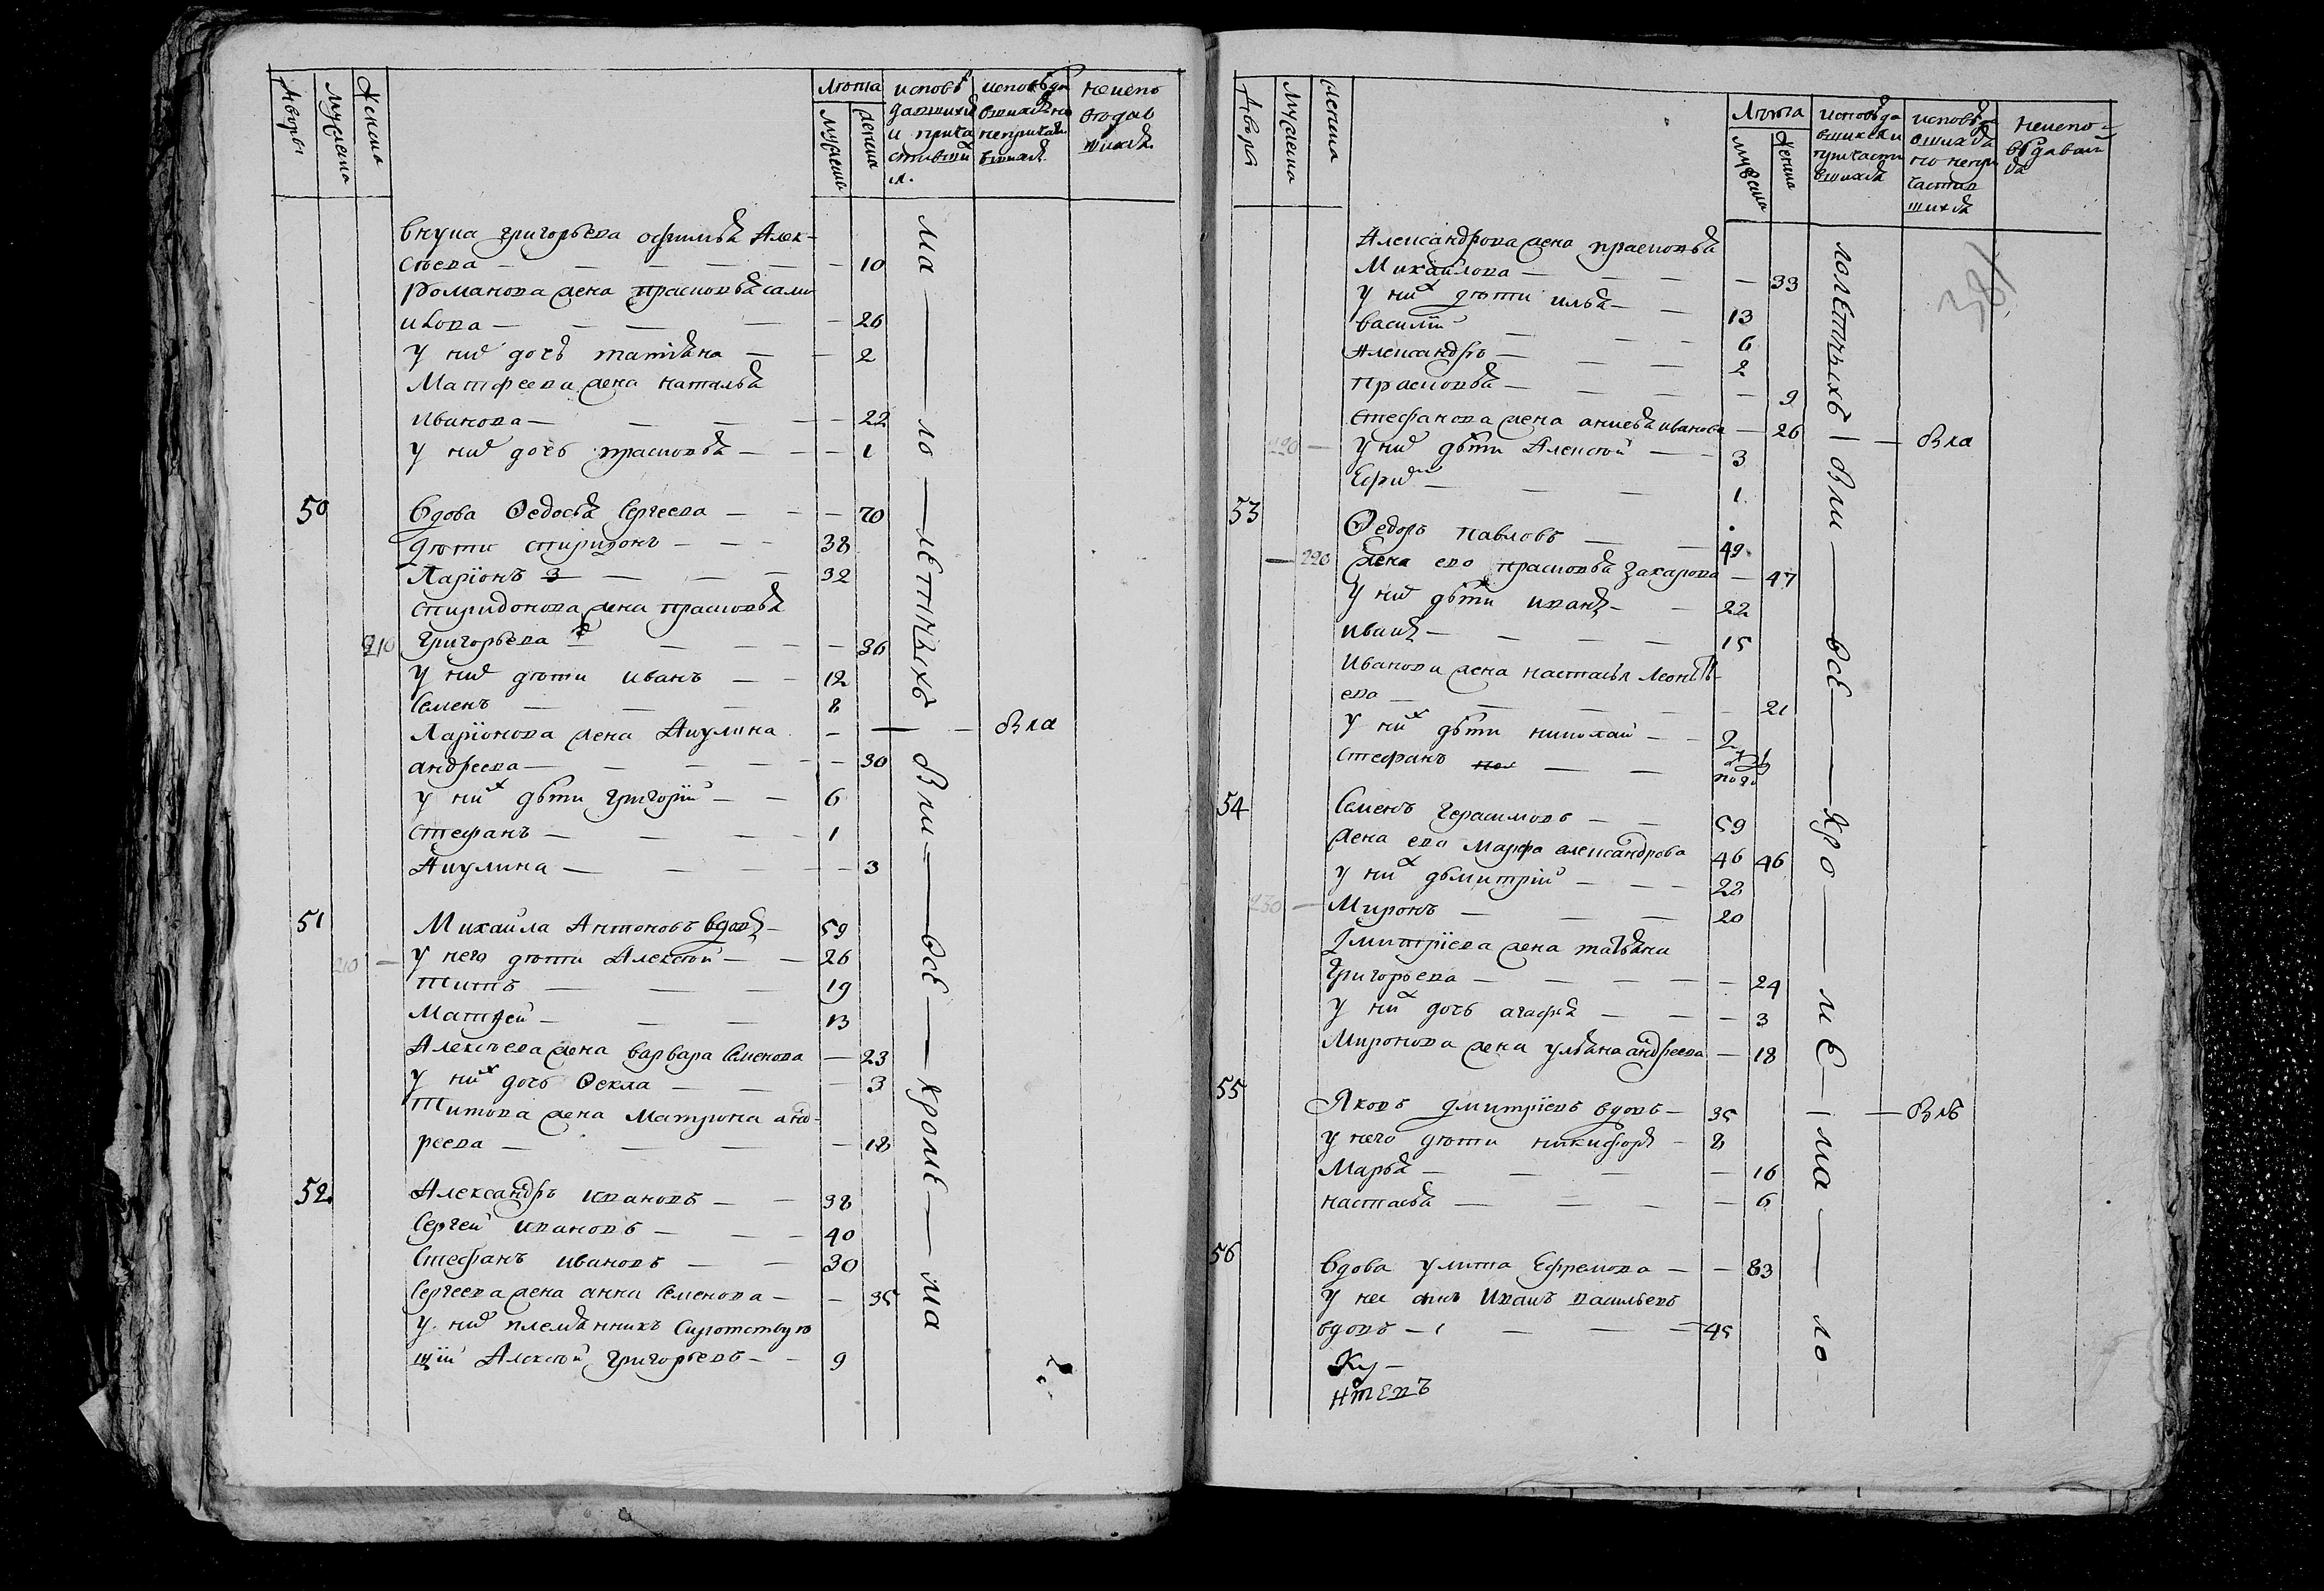 Дворы Мужеска Женска Лѣта Мужеска Женска исповѣдавшихся и причастившихся исповѣдавшихся но непричастившихся неисповѣдавшихся
внука григорьева офимья Алек-
сѣева — — — — — 10
Романова жена прасковья сами
илова — — — — 26
у них дочь татьяна — — 2
Матфеева жена наталья
иванова — — — — 22
у них дочь прасковья — — 1
50 Вдова Ѳедосья Сергеева — — 70
дѣти спиридонъ — — 38
Ларіонъ — — — 32
спиридонова жена прасковья
210 григорьева — — — 36
у них дѣти иванъ — — 12
Семенъ — — — 8
Ларіонова жена Акулина
андреева — — — — 30
у них дѣти григорій — — 6
стефанъ — — — 1
Акулина — — — — 3
51 Михайла Антоновъ вдовъ — 59
210 — у него дѣти Алексѣй — — 26
титъ — — — 19
Матѳей — — — 13
Алексѣева жена варвара Семенова — 23
у них дочь Ѳекла — — — 3
Титова жена Матрона анд-
реева — — — — 18
52 Александръ ивановъ — — 38
Сергей ивановъ — — — 40
Стефанъ ивановъ — — 30
Сергеева жена анна Семенова — — 35
у них племянникъ Сиротствую
щій Алексѣй григорьевъ — — 9
ма — ло — лѣтныхъ вли — всѣ — кромѣ — ма
вла
Дворы Мужеска Женска Лѣта Мужеска Женска исповѣдавшихся и причастившихся исповѣдавшихся но непричастившихся неисповѣдавшихся
381
Александрова жена прасковья
Михайлова — — — — 33
у них дѣти илья — — 13
василій — — — 6
Александръ — — — 2
прасковья — — — — 9
стефанова жена анисья иванова — 26
220 — у них дѣти Алексѣй — — 3
Ефим — — — 1
53 Ѳедоръ павловъ — — 49
— 220 жена ево прасковья захарова — 47
у них дѣти иванъ — — 22
иванъ — — — 15
Иванова жена настасья Леонть-
ева — — — — 21
у них дѣти николай — — 2
стефанъ — —
54 Семенъ герасимовъ — — 59
жена ево Марфа александрова 46 46
у них дьмитрій — — — 22
230 — Миронъ — — — 20
Дмитріева жена татьяна
григорьева — — — — 24
у них дочь агафья — — — 3
Миронова жена ульяна андреева — 18
55 Яковъ дмитріевъ вдовъ — 35
у него дѣти никифоръ — 8
Марья — — — — 16
настасья — — — — 6
56 Вдова улита Ефремова — — 83
у нее сынъ Иванъ васильевъ
вдовъ — — — — 45
Ку-
нтевъ
лолѣтныхъ вли — всѣ — кро — мѣ — ма — ло-
вла
влѣ